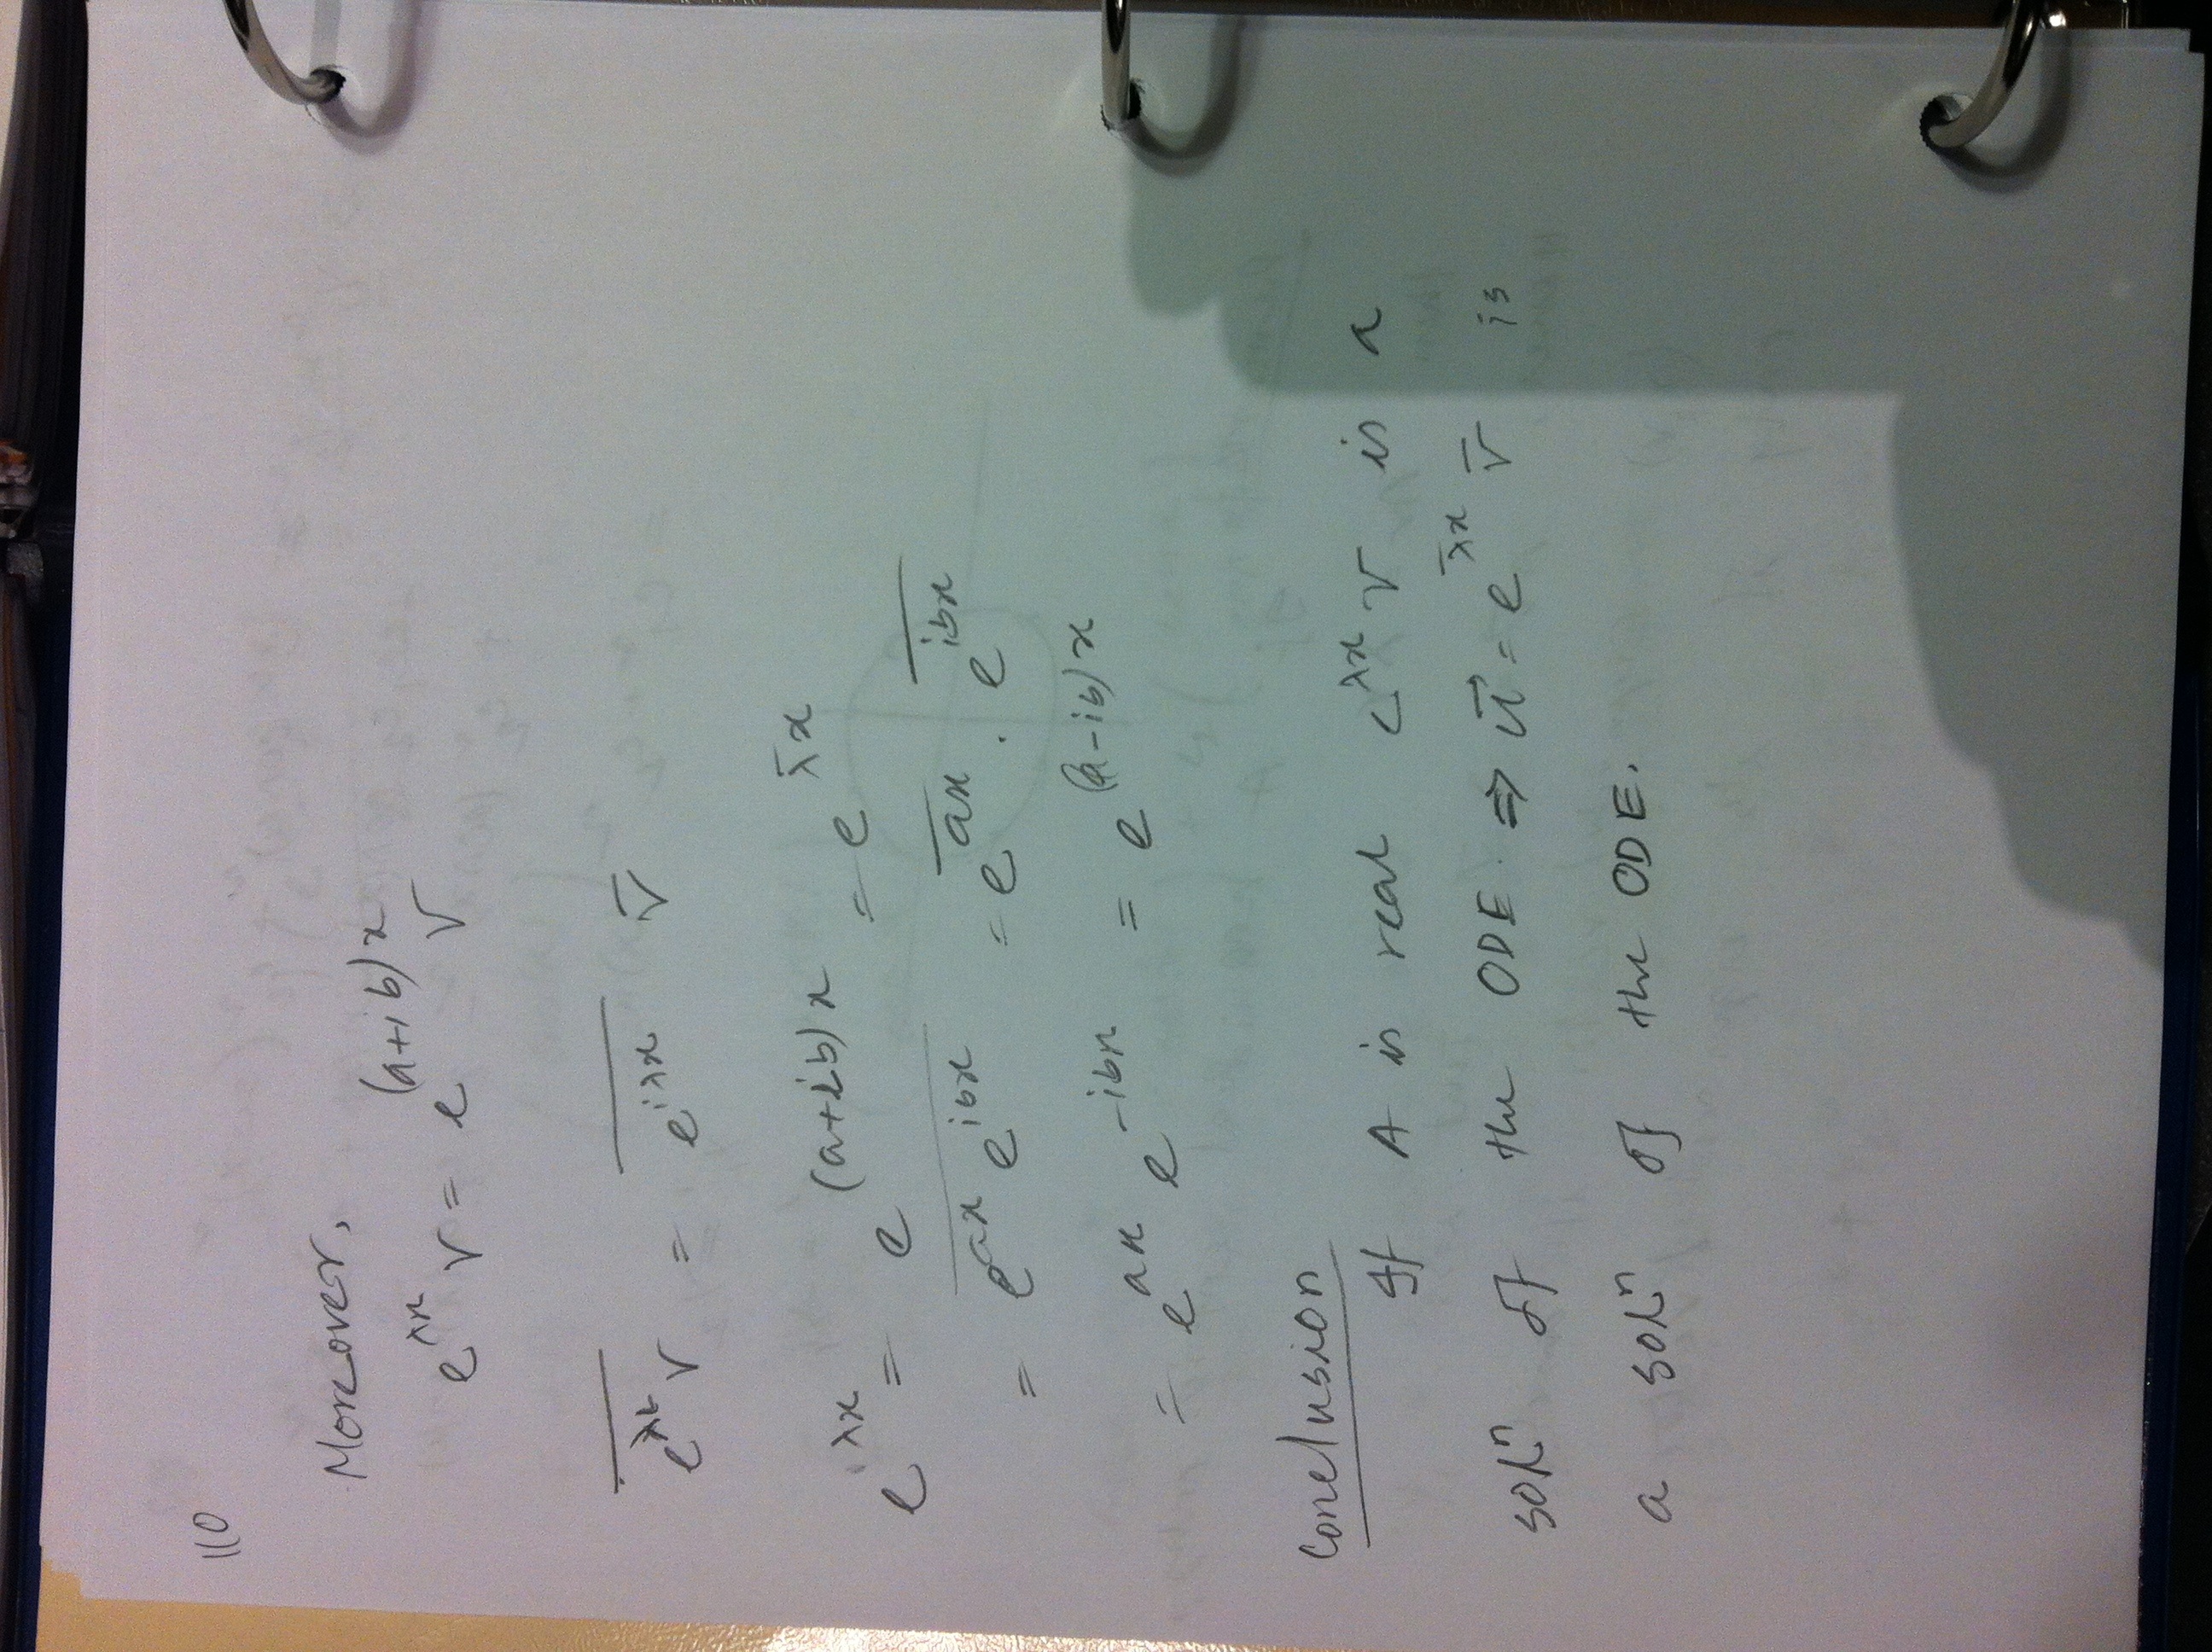 110
Moreover,
e^{λx} v = e^{(a+ib)x} v
\overline{e^{λx}} v = \overline{e^{iλx}} \overline{v}
e^{λx} = e^{(a+ib)x} = e^{\overline{λ}x}
= \overline{e^{ax} e^{ibx}} = e^{\overline{ax}} · \overline{e^{ibx}}
= e^{ax} e^{-ibx} = e^{(a-ib)x}
Conclusion
If A is real e^{λx} v is a
solⁿ of the ODE ⇒ \vec{u} = e^{\overline{λ}x} \overline{v} is
a solⁿ of the ODE.